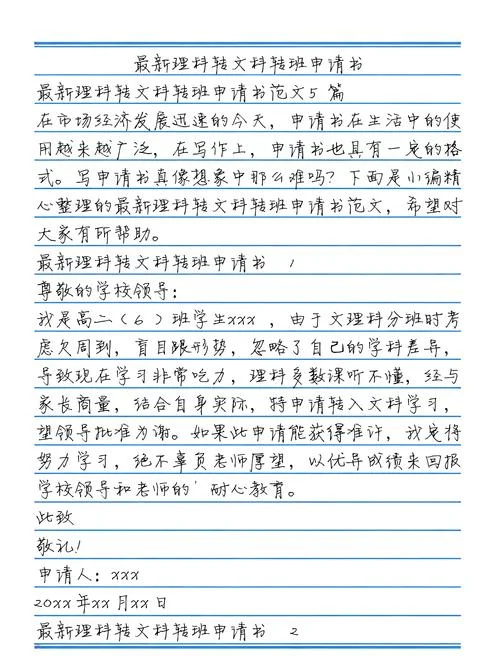 最新理科转文科转班申请书
最新理科转文科转班申请书范文5 篇
在市场经济发展迅速的今天，申请书在生活中的使
用越来越广泛，在写作上，申请书也具有一定的格
式。写申请书真像想象中那么难吗？下面是小编精
心整理的最新理科转文科转班申请书范文，希望对
大家有所帮助。
最新理科转文科转班申请书 1
尊敬的学校领导：
我是高二（6）班学生xxx ，由于文理科分班时考
虑欠周到，盲目跟形势，忽略了自己的学科差异，
导致现在学习非常吃力，理科多数课听不懂，经与
家长商量，结合自身实际，特申请转入文科学习，
望领导批准为谢。如果此申请能获得准许，我定将
努力学习，绝不辜负老师厚望，以优异成绩来回报
学校领导和老师的'耐心教育。
此致
敬礼！
申请人：xxx
20xx年xx月xx日
最新理科转文科转班申请书 2